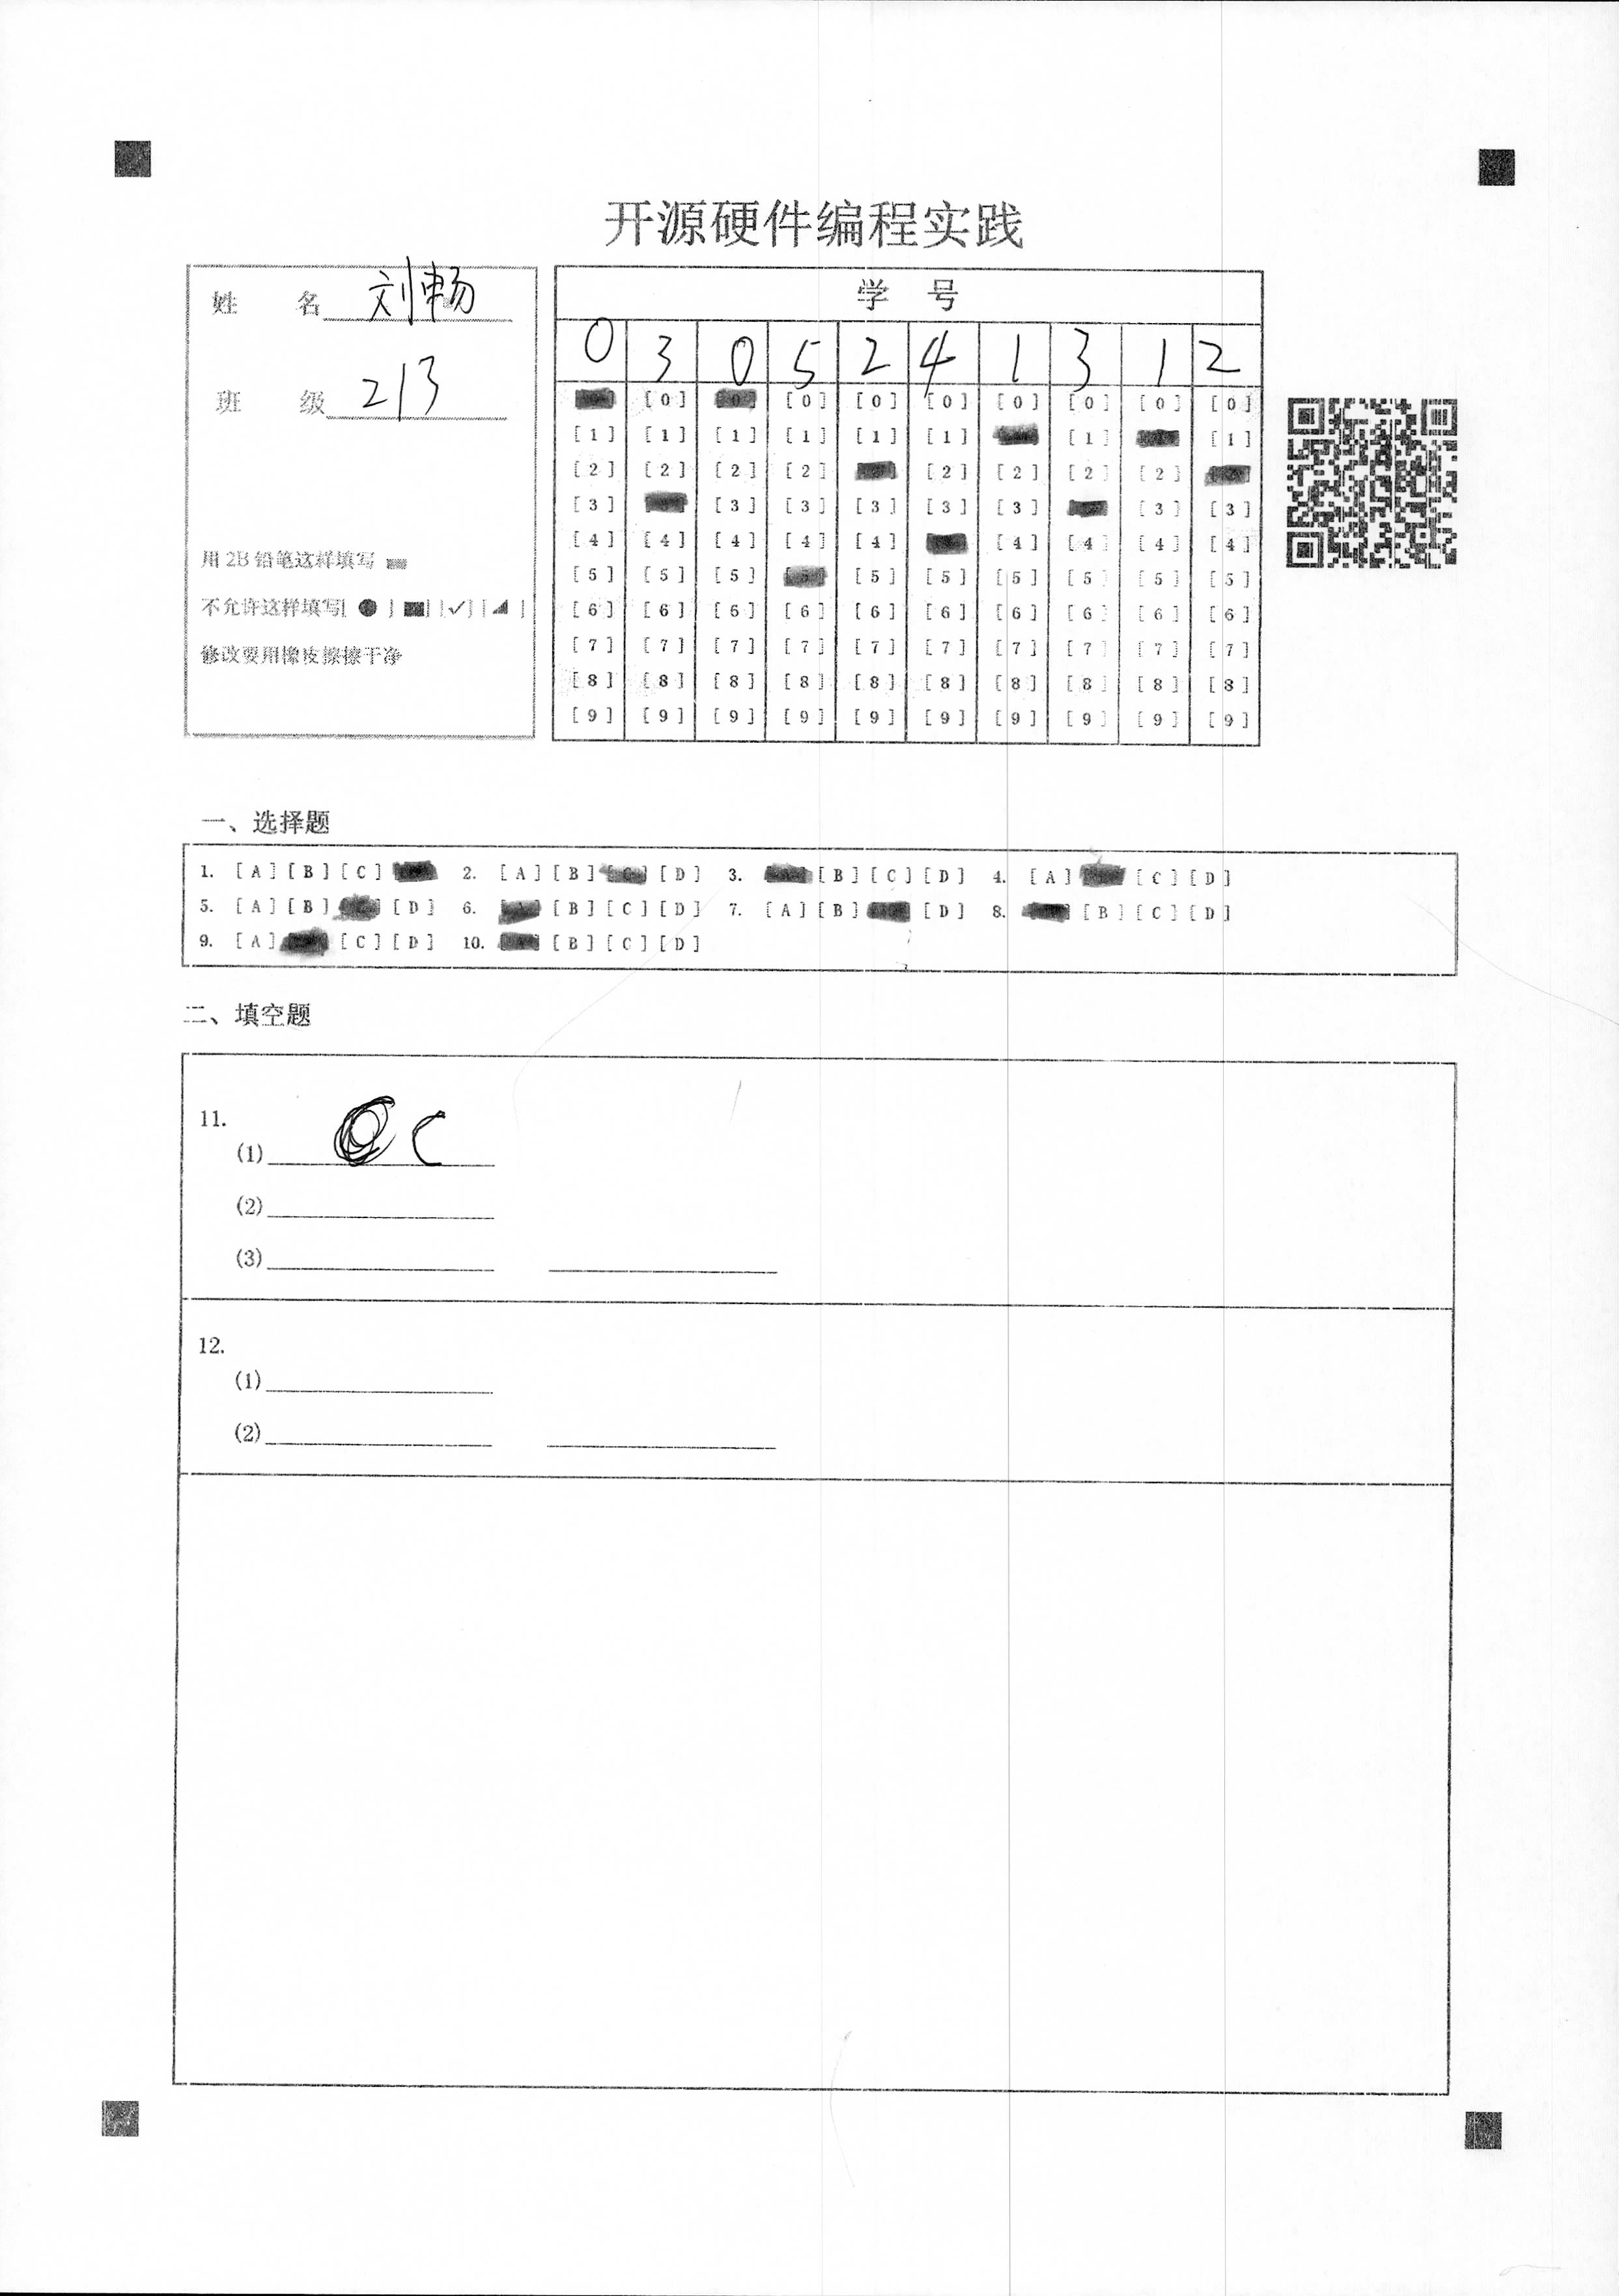 开源硬件编程实践
姓 名 刘畅
班 级 213
用 2B 铅笔这样填写
不允许这样填写[ ● ] [■] [✓] [◢ ]
修改要用橡皮擦擦干净
学 号
0 3 0 5 2 4 1 3 1 2
[0] [0] [0] [0] [0] [0] [0] [0]
[1] [1] [1] [1] [1] [1] [1] [1]
[2] [2] [2] [2] [2] [2] [2] [2]
[3] [3] [3] [3] [3] [3] [3] [3]
[4] [4] [4] [4] [4] [4] [4] [4] [4]
[5] [5] [5] [5] [5] [5] [5] [5] [5]
[6] [6] [6] [6] [6] [6] [6] [6] [6] [6]
[7] [7] [7] [7] [7] [7] [7] [7] [7] [7]
[8] [8] [8] [8] [8] [8] [8] [8] [8] [8]
[9] [9] [9] [9] [9] [9] [9] [9] [9] [9]
一、选择题
1. [A] [B] [C] 2. [A] [B] [D] 3. [B] [C] [D] 4. [A] [C] [D]
5. [A] [B] [D] 6. [B] [C] [D] 7. [A] [B] [D] 8. [B] [C] [D]
9. [A] [C] [D] 10. [B] [C] [D]
二、填空题
11.
(1) C
(2)
(3)
12.
(1)
(2)